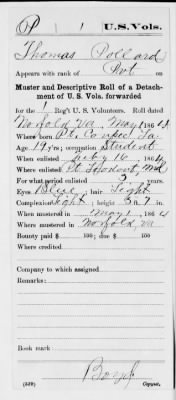 P | 1 | U.S. Vols.
Thomas Pollard
Appears with rank of Pvt on
Muster and Descriptive Roll of a Detach-
ment of U. S. Vols. forwarded
for the 1 Reg't U. S. Volunteers. Roll dated
Norfolk, Va, May 1, 186
Where born Pt. Coupee, La.
Age 19 y'rs; occupation Student
When enlisted 186
Where enlisted Pt. Lookout, Md
For what period enlisted 3 years.
Eyes Blue; hair Light
Complexion Light; height 5 ft. 7 in.
When mustered in May 1, 1864
Where mustered in Norfolk, Va
Bounty paid $ 100; due $ 100
Where credited
Company to which assigned
Remarks:
Book mark:
(339) Copyist.